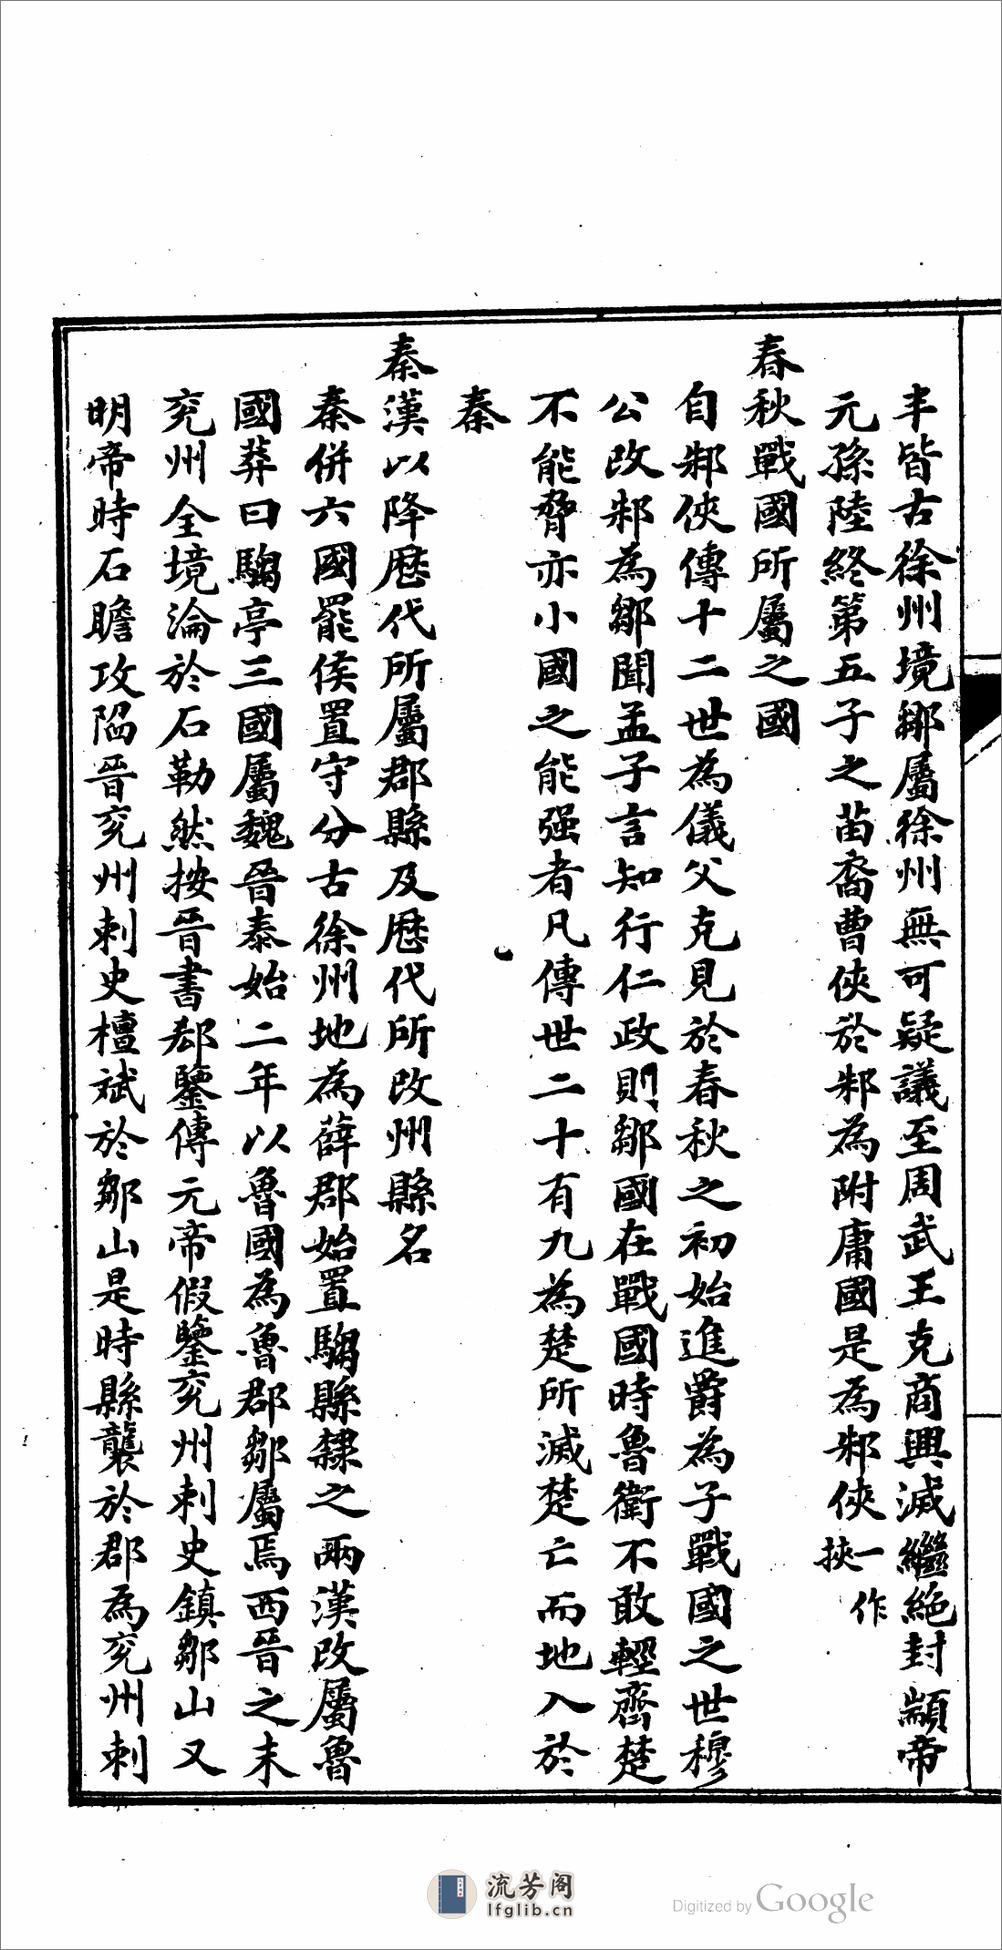 丰皆古徐州境鄒屬徐州無可疑議至周武王克商興滅繼絶封顓帝
元孫陸終第五子之苗裔曹俠於邾為附庸國是為邾俠一作挾
春秋戰國所屬之國
自邾俠傳十二世為儀父克見於春秋之初始進爵為子戰國之世穆
公改邾為鄒聞孟子言知行仁政則鄒國在戰國時魯衛不敢輕齊楚
不能脅亦小國之能强者凡傳世二十有九為楚所滅楚亡而地入於
秦
秦漢以降歴代所屬郡縣及歴代所改州縣名
秦併六國罷侯置守分古徐州地為薛郡始置騶縣隸之兩漢改屬魯
國莽曰騶亭三國屬魏晉泰始二年以魯國為魯郡鄒屬焉西晉之末
兖州全境淪於石勒然按晉書郄鑒傳元帝假鑒兖州刺史鎮鄒山又
明帝時石瞻攻陷晉兖州刺史檀斌於鄒山是時縣襲於郡為兖州刺
流芳阁
lfglib.cn
Digitized by Google